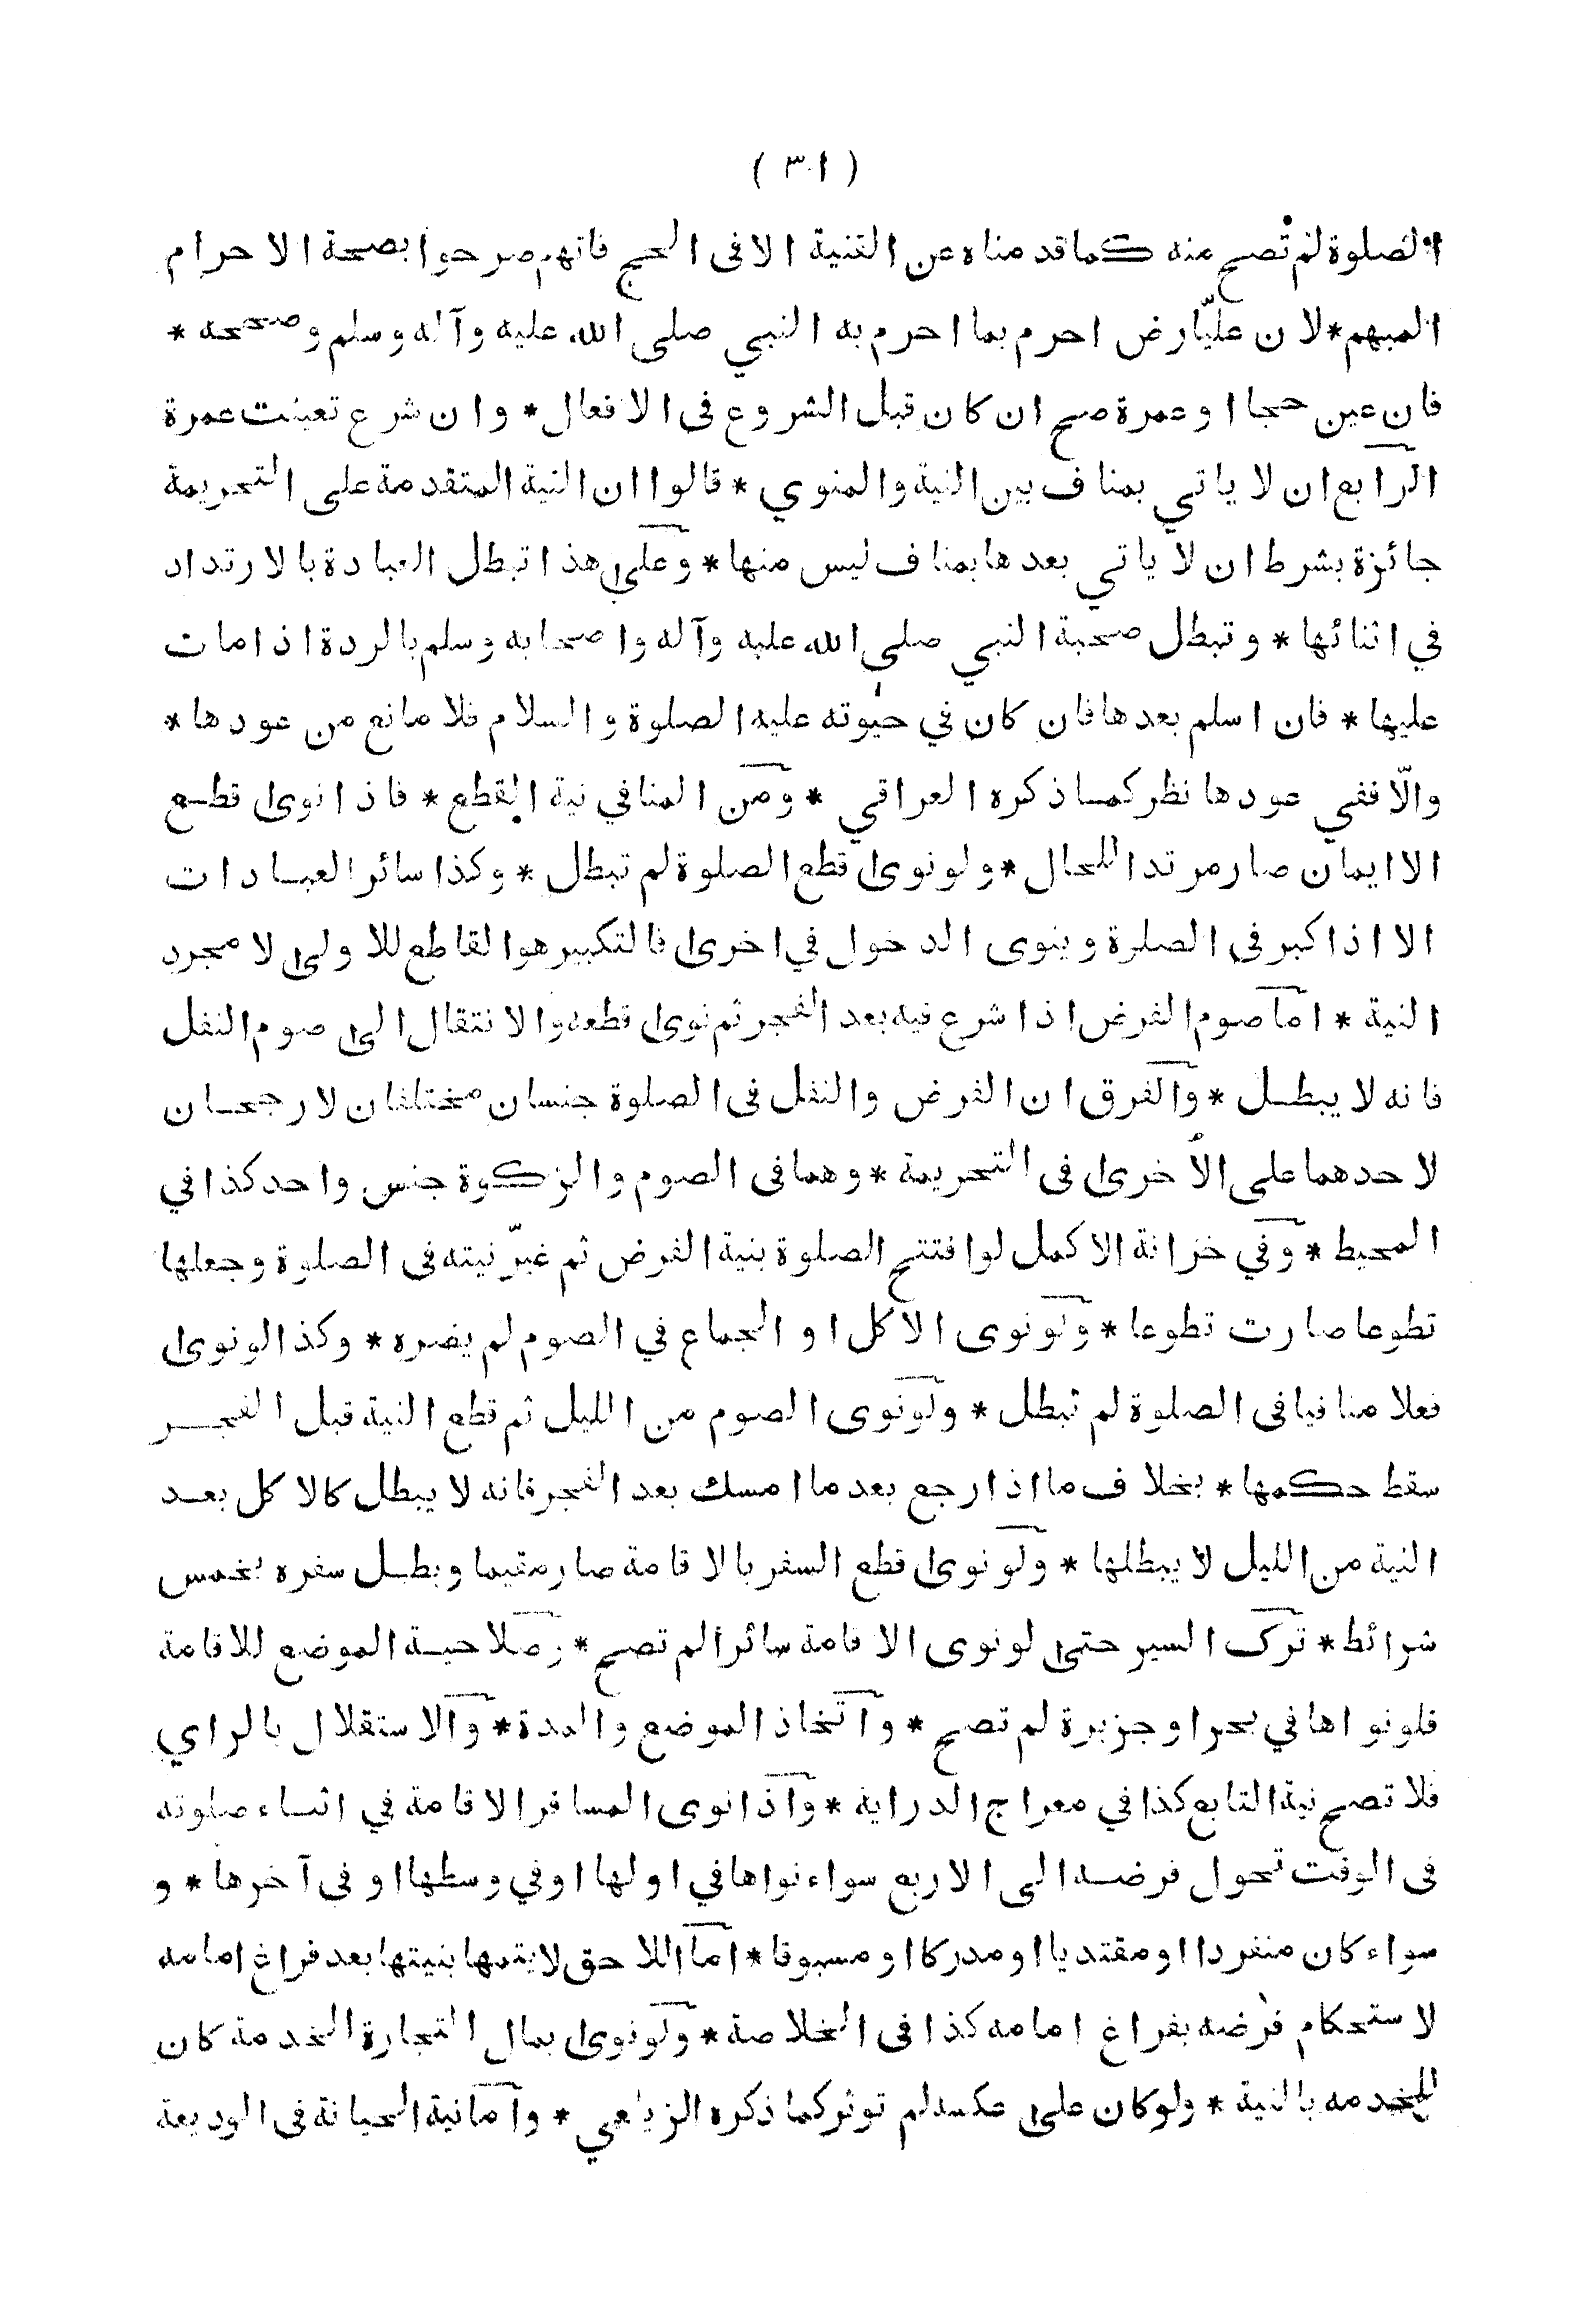 ( ٣٠١ )
الصلوة لم تصح منه كما قدمناه عن القنية الا فى الحج فانهم صرحوا بصحة الاحرام
المبهم * لان عليّا رض احرم بما احرم به النبي صلى الله عليه وآله وسلم وصححه *
فان عين حجا او عمرة صح ان كان قبل الشروع فى الافعال * وان شرع تعينت عمرة
الرابع ان لا ياتي بمناف بين النية والمنوي * قالوا ان النية المتقدمة على التحريمة
جائزة بشرط ان لا ياتي بعدها بمناف ليس منها * وعلى هذا تبطل العبادة بالارتداد
في اثنائها * وتبطل صحبة النبي صلى الله عليه وآله واصحابه وسلم بالردة اذا مات
عليها * فان اسلم بعدها فان كان في حيوته عليه الصلوة والسلام فلا مانع من عودها *
والّا ففي عودها نظر كما ذكره العراقي * ومن المنافي نية القطع * فاذا نوى قطع
الاايمان صار مرتدا للحال * ولو نوى قطع الصلوة لم تبطل * وكذا سائر العبادات
الا اذا كبر فى الصلوة وينوى الدخول في اخرى فالتكبير هو القاطع للاولى لا مجرد
النية * اما صوم الفرض اذا شرع فيه بعد الفجر ثم نوى قطعه والانتقال الى صوم النفل
فانه لا يبطل * والفرق ان الفرض والنفل فى الصلوة جنسان مختلفان لا رجحان
لاحدهما على الأخرى فى التحريمة * وهما فى الصوم والزكوة جنس واحد كذا في
المحيط * وفي خزانة الاكمل لو افتتح الصلوة بنية الفرض ثم غيّر نيته فى الصلوة وجعلها
تطوعا صارت تطوعا * ولو نوى الاكل او الجماع في الصوم لم يضره * وكذا لو نوى
فعلا منافيا فى الصلوة لم تبطل * ولو نوى الصوم من الليل ثم قطع النية قبل الفجر
سقط حكمها * بخلاف ما اذا رجع بعد ما امسك بعد الفجر فانه لا يبطل كالاكل بعد
النية من الليل لا يبطلها * ولو نوى قطع السفر بالاقامة صار مقيما وبطل سفره بخمس
شرائط * ترك السير حتى لو نوى الاقامة سائرا لم تصح * وصلاحية الموضع للاقامة
فلو نواها في بحر او جزيرة لم تصح * واتخاذ الموضع والمدة * والاستقلال بالراي
فلا تصح نية التابع كذا في معراج الدراية * واذا نوى المسافر الاقامة في اثناء صلوته
فى الوقت تحول فرضه الى الاربع سواء نواها في اولها او في وسطها او فى آخرها * و
سواء كان منفردا او مقتديا او مدركا او مسبوقا * اما اللاحق لا يتمها بنيتها بعد فراغ امامه
لاستحكام فرضه بفراغ امامه كذا فى الخلاصة * ولو نوى بمال التجارة الخدمة كان
للخدمه بالنية * ولو كان على عكسه لم توثر كما ذكره الزيلعي * واما نية الخيانة فى الوديعة